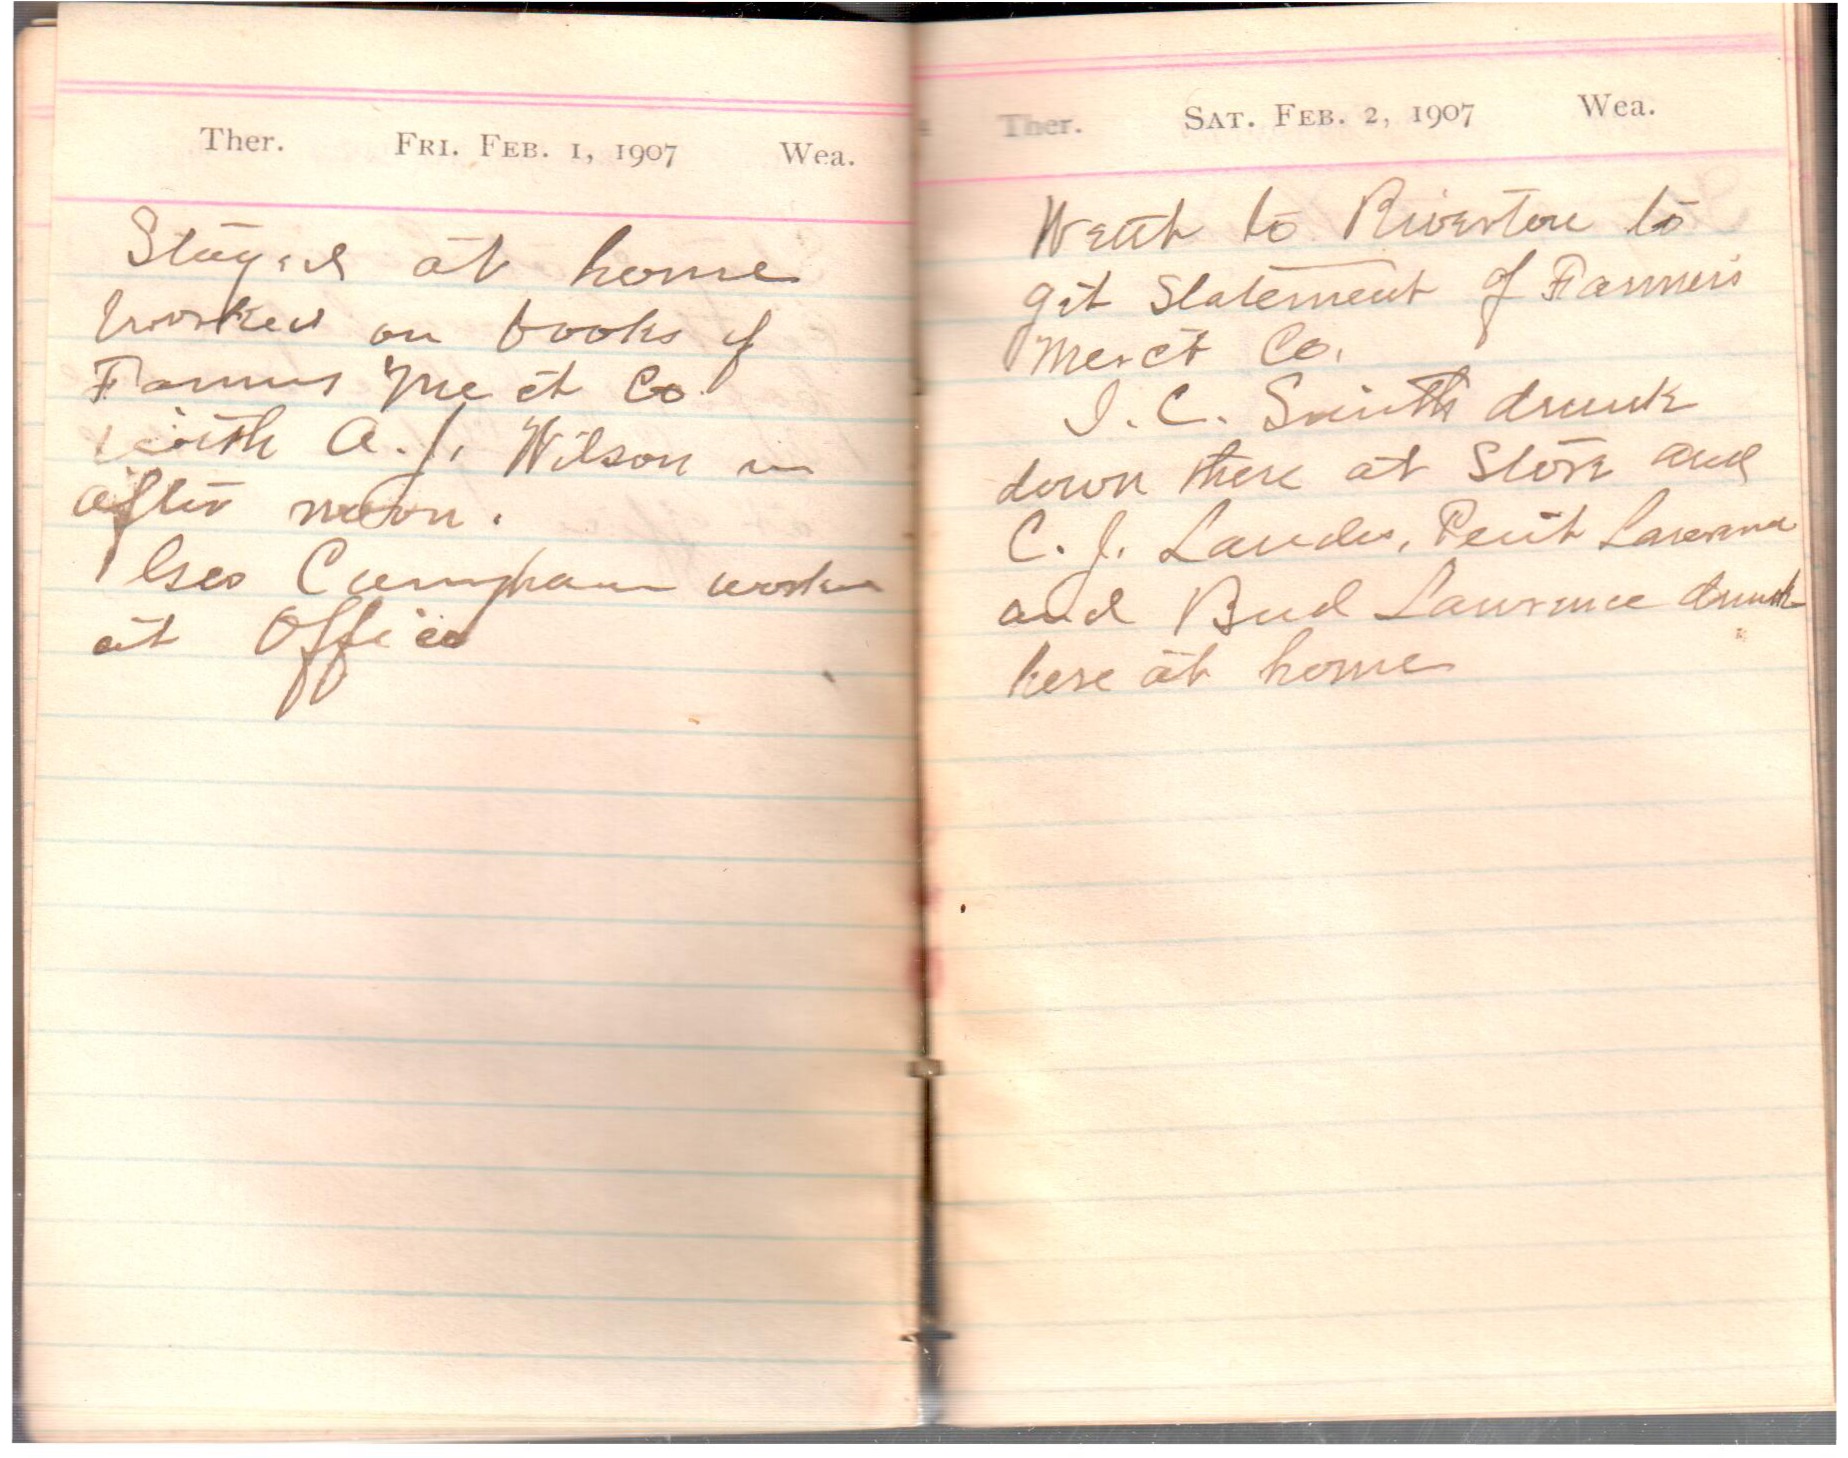 Ther. Fri. Feb. 1, 1907 Wea.
Stayed at home
worked on books of
Farmers Merct Co
with A. J. Wilson in
after noon.
Geo Cunigham worked
at Office
Ther. Sat. Feb. 2, 1907 Wea.
Went to Riverton to
get Statement of Farmers
Merct Co.
I. C. Smith drunk
down there at Store and
C. J. Landes, Lawrence
and Bud Lawrence drunk
here at home